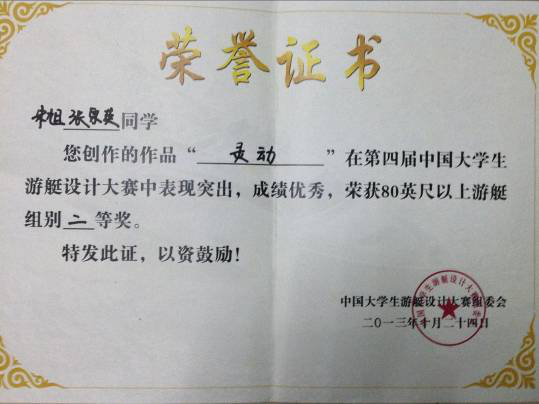 荣誉证书
张泉英同学
您创作的作品“灵动”在第四届中国大学生
游艇设计大赛中表现突出，成绩优秀，荣获80英尺以上游艇
组别二等奖。
特发此证，以资鼓励!
中国大学生游艇设计大赛组委会
二〇一三年十月二十四日